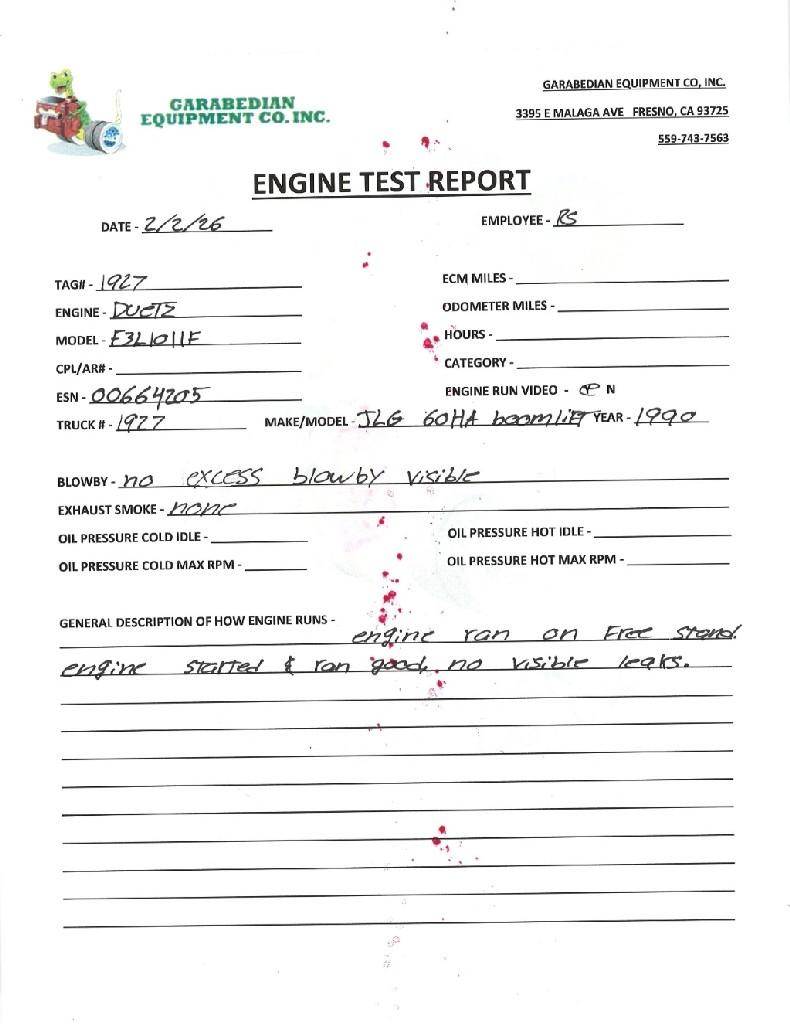 GARABEDIAN EQUIPMENT CO, INC.
GARABEDIAN
EQUIPMENT CO. INC.
3395 E MALAGA AVE FRESNO, CA 93725
559-743-7563
ENGINE TEST REPORT
DATE - 2/2/26 EMPLOYEE - RS
TAG# - 1927 ECM MILES -
ENGINE - DUETZ ODOMETER MILES -
MODEL - F3L1011F HOURS -
CPL/AR# - CATEGORY -
ESN - 00664205 ENGINE RUN VIDEO - N
TRUCK # - 1927 MAKE/MODEL - JLG 60HA boomlift YEAR - 1990
BLOWBY - no excess blowby visible
EXHAUST SMOKE - none
OIL PRESSURE COLD IDLE - OIL PRESSURE HOT IDLE -
OIL PRESSURE COLD MAX RPM - OIL PRESSURE HOT MAX RPM -
GENERAL DESCRIPTION OF HOW ENGINE RUNS -
engine ran on Free stand.
engine started & ran good, no visible leaks.